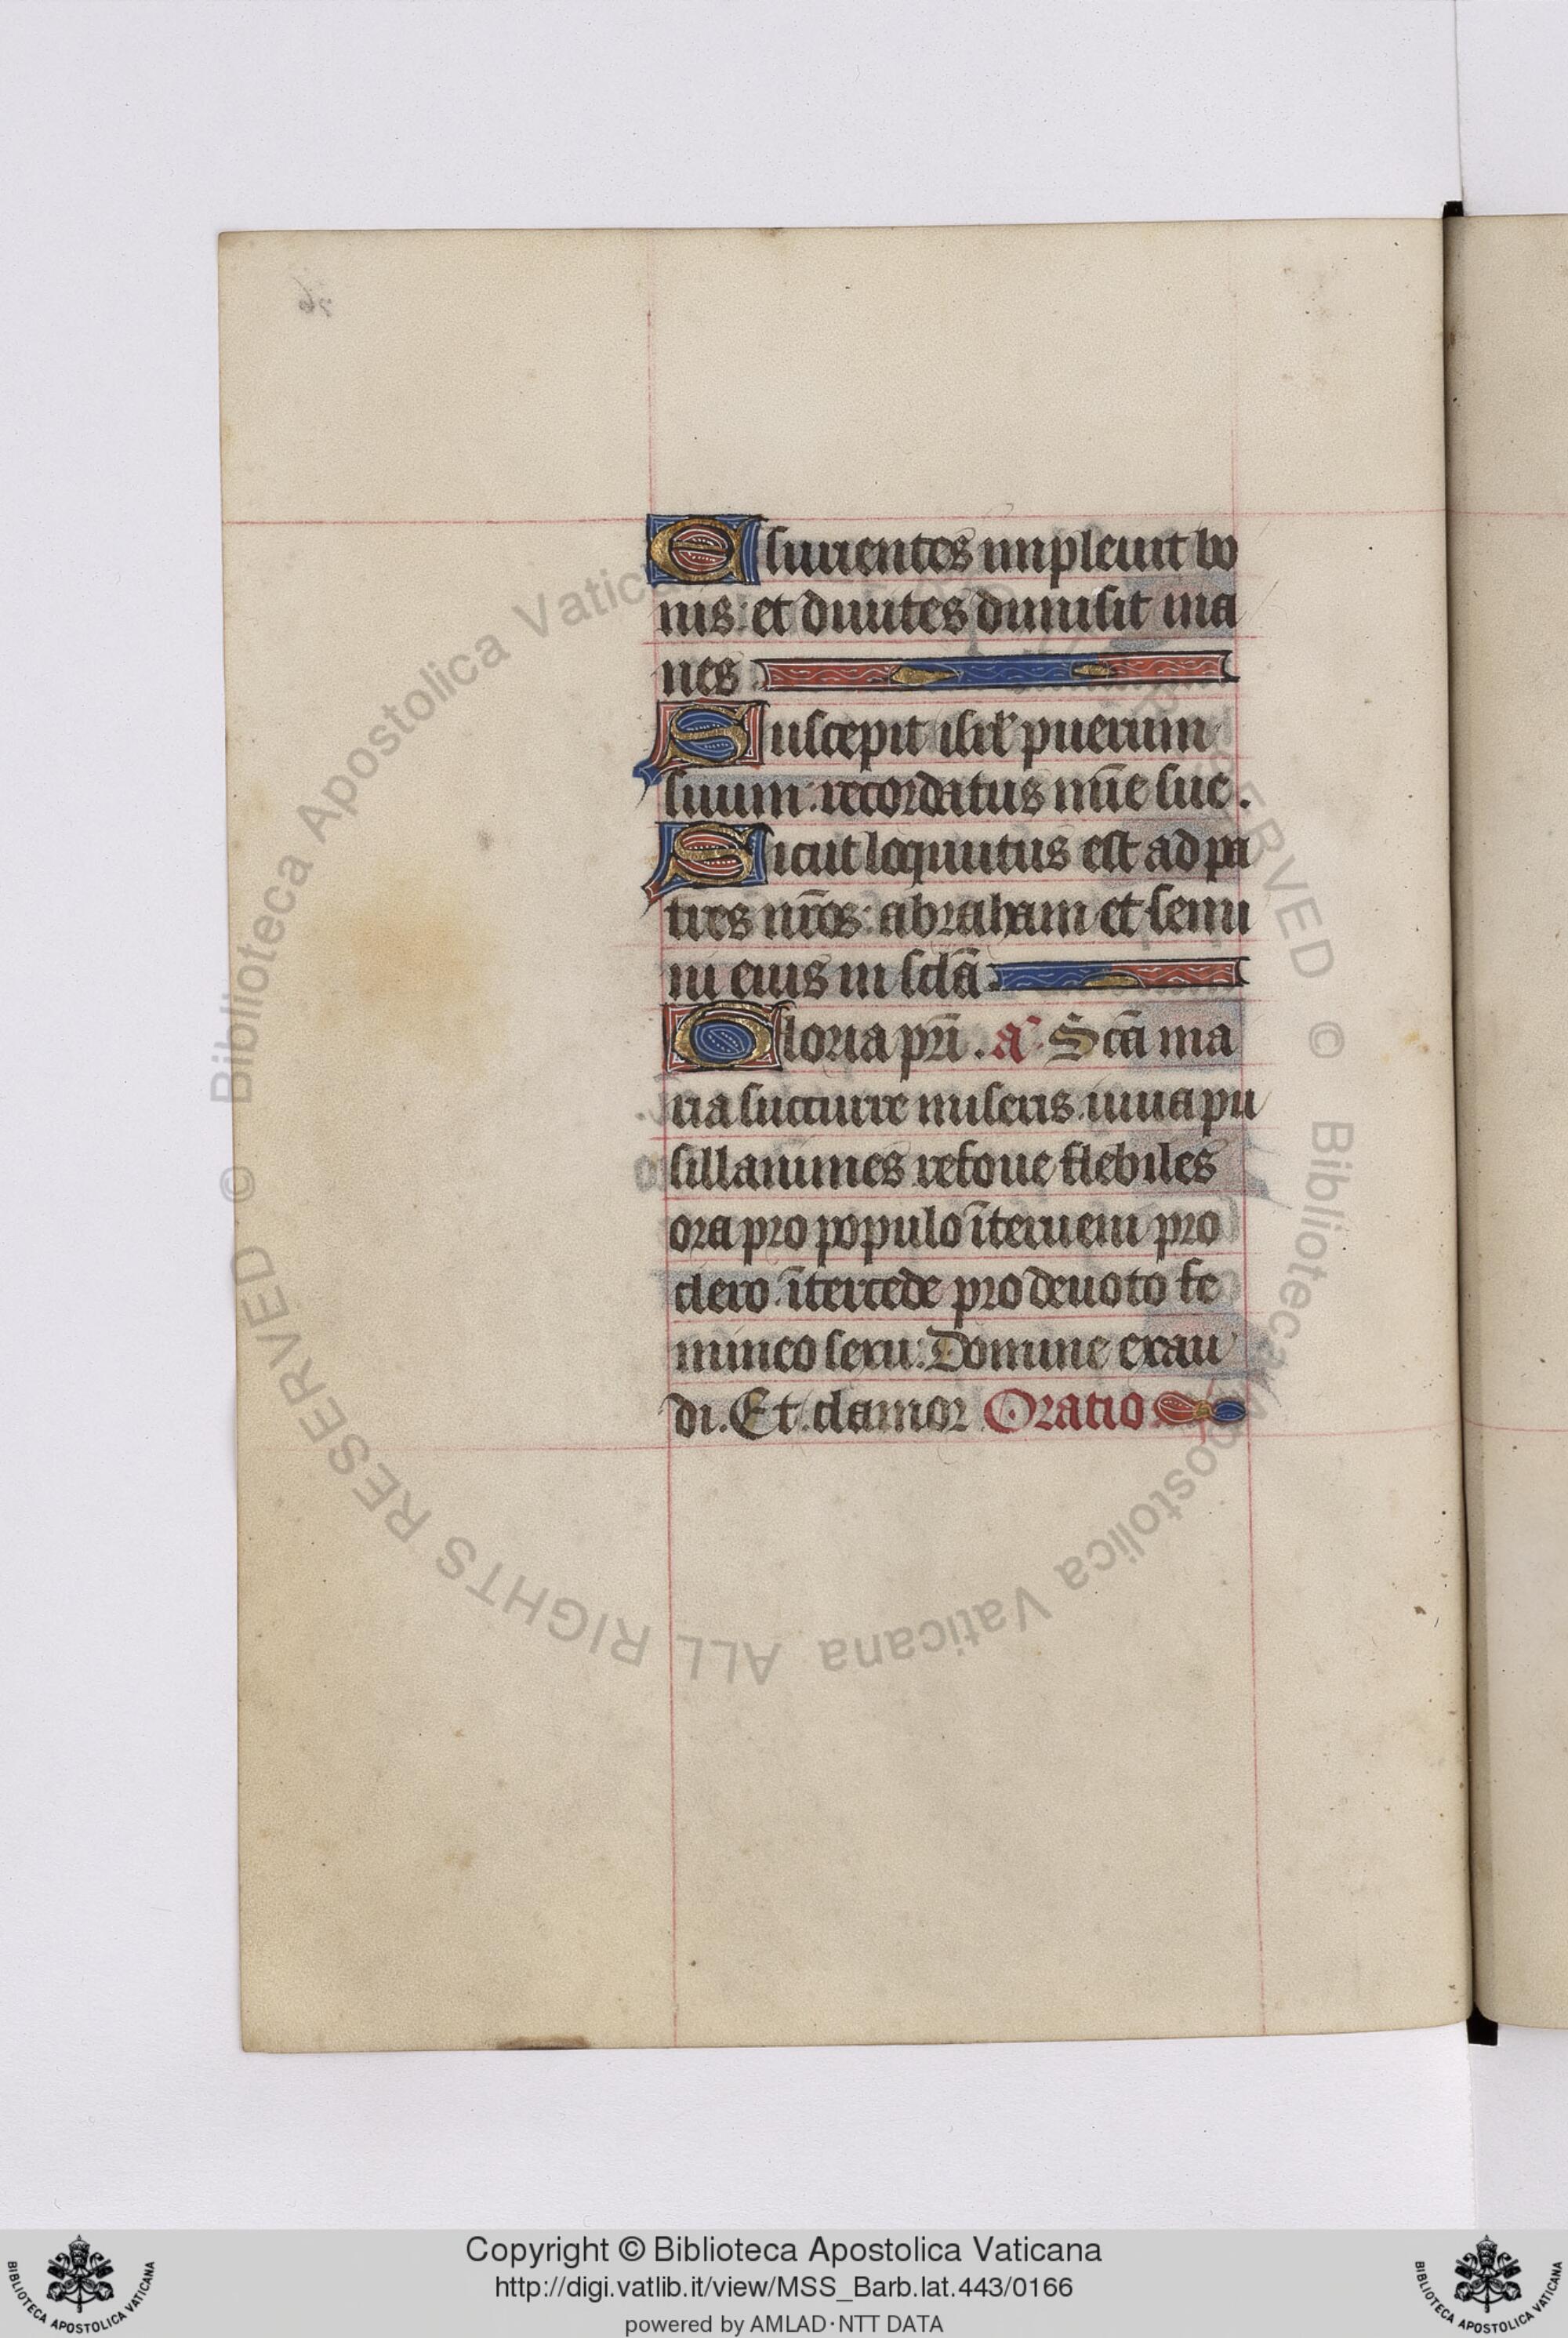 Esurientes impleuit bo
nis: et diuites dimisit ina
nes
Suscepit isrl̄ puerum
suum: recordatus mīe sue.
Sicut loquutus est ad pa
tres nr̄os: abraham et semi
ni eius in sclā:
Gloria pr̄i. a. Sc̄a ma
ria succurre miseris iuua pu
sillanimes refoue flebiles
ora pro populo īterueni pro
clero īntercede pro deuoto fe
mineo sexu: Domine exau
di. Et clamor Oratio
© Biblioteca Apostolica Vaticana ALL RIGHTS RESERVED © Biblioteca Apostolica Vaticana ALL RIGHTS RESERVED
Copyright © Biblioteca Apostolica Vaticana
http://digi.vatlib.it/view/MSS_Barb.lat.443/0166
powered by AMLAD·NTT DATA
BIBLIOTECA APOSTOLICA VATICANA
BIBLIOTECA APOSTOLICA VATICANA